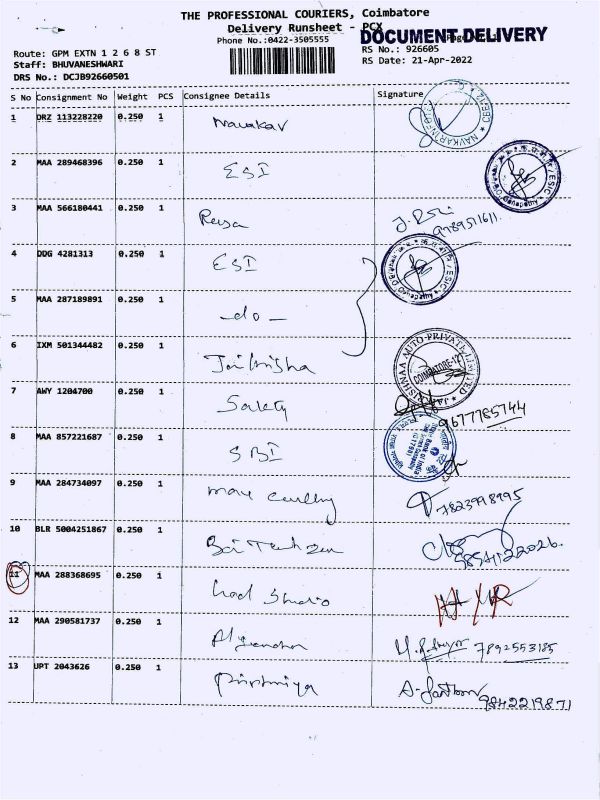 THE PROFESSIONAL COURIERS, Coimbatore
Delivery Runsheet - PCX
DOCUMENT DELIVERY
Phone No.:0422-3505555
Route: GPM EXTN 1 2 6 8 ST
RS No.: 926605
Staff: BHUVANESHWARI
RS Date: 21-Apr-2022
DRS No.: DCJB92660501
S No Consignment No Weight PCS Consignee Details Signature
1 DRZ 113228220 0.250 1 Navakar
2 MAA 289468396 0.250 1 ESI
3 MAA 566180441 0.250 1
9789511611
4 DDG 4281313 0.250 1 ESI
5 MAA 287189891 0.250 1 -do-
6 IXM 501344482 0.250 1 Jaikrisha
COIMBATORE-12
7 AWY 1204700 0.250 1 Safety
9677785744
8 MAA 857221687 0.250 1 SBI
9 MAA 284734097 0.250 1
7823998995
10 BLR 5004251867 0.250 1
11 MAA 288368695 0.250 1 Studio
12 MAA 290581737 0.250 1
7892553185
13 UPT 2043626 0.250 1
9842219871